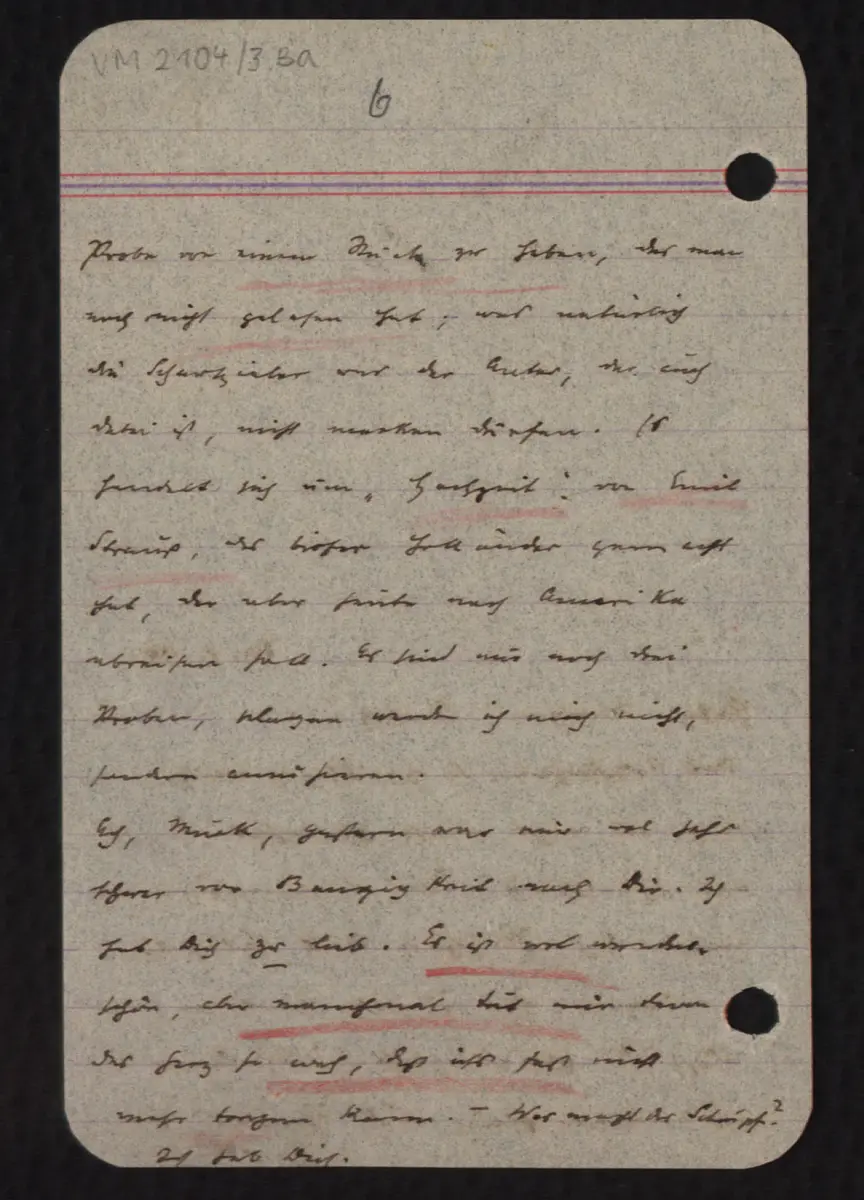 VM 2104/3.Ba
6
Probe von einem Stück zu haben, das man
noch nicht gelesen hat; was natürlich
die Schauspieler und der Autor, der auch
dabei ist, nicht merken dürfen. Es
handelt sich um „Hochzeit“ von Emil
Strauß, das bisher Holländer gemacht
hat, der aber heute nach Amerika
abreisen soll. Es sind nur noch drei
Proben, plagen werde ich mich nicht,
sondern amüsieren.
Ach, Muck, gestern war mir wol sehr
schwer vor Bangigkeit nach Dir. Ich
hab Dich zu lieb. Es ist wol wunder-
schön, aber manchmal tut mir davon
das Herz so weh, daß ichs fast nicht
mehr tragen kann. – Was macht der Schnupf?
Ich hab Dich.